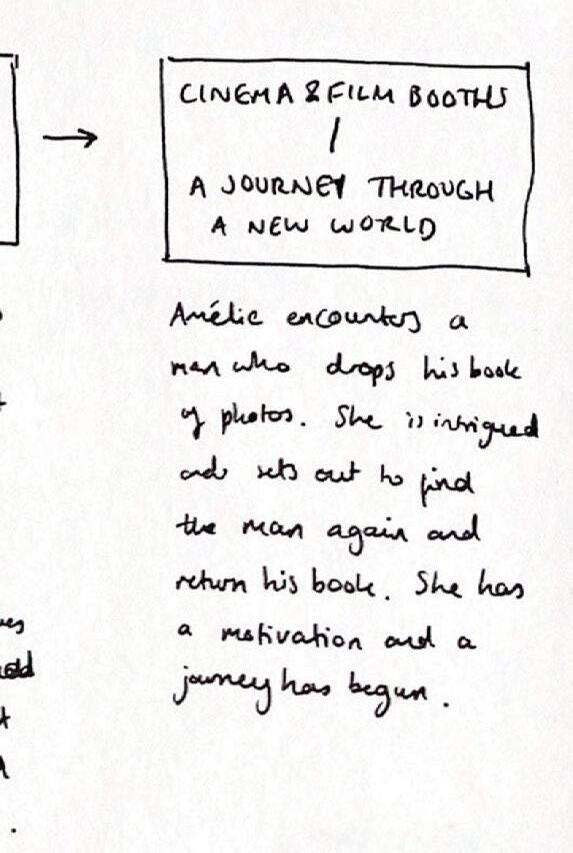 CINEMA & FILM BOOTHS
/
A JOURNEY THROUGH
A NEW WORLD
Amélie encounters a
man who drops his book
of photos. She is intrigued
and sets out to find
the man again and
return his book. She has
a motivation and a
journey has begun.